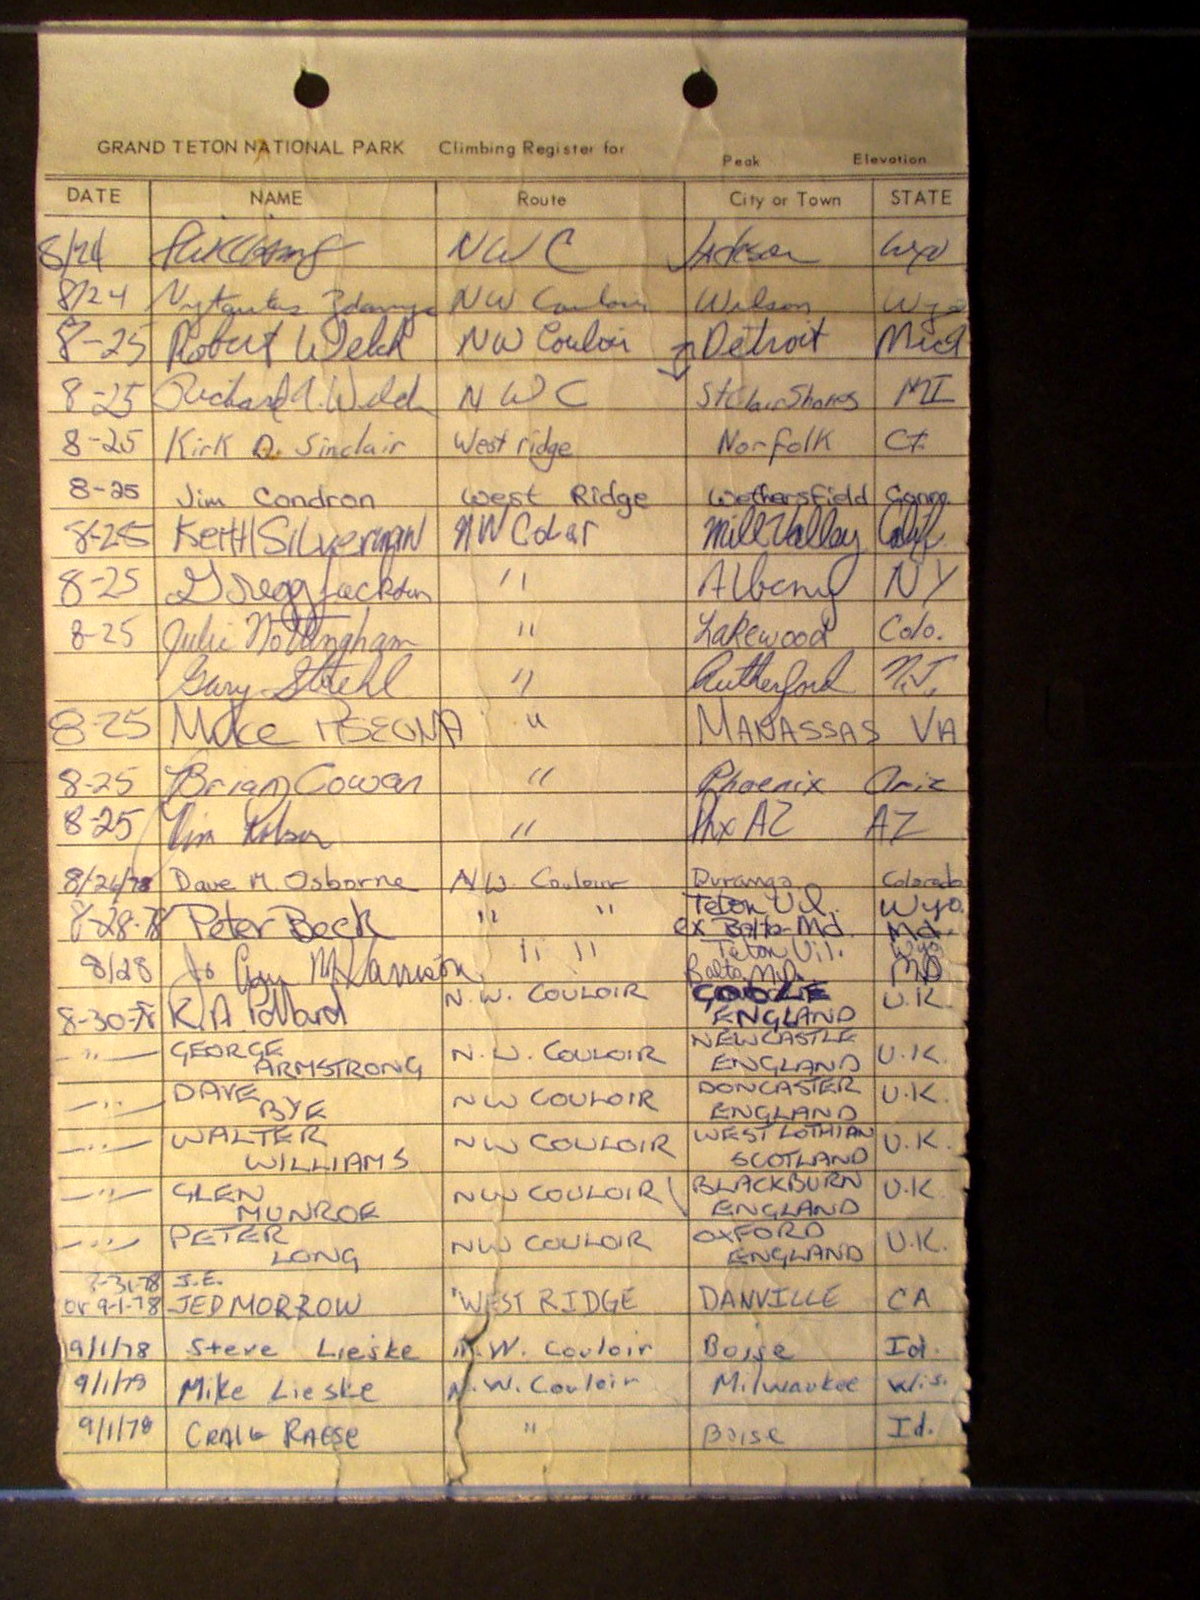 GRAND TETON NATIONAL PARK Climbing Register for Peak Elevation
DATE NAME Route City or Town STATE
8/24 NWC Jackson Wyo
8/24 NW Couloir Wilson Wyo
8-25 Robert Welch NW Couloir Detroit Mich
8-25 Richard A. Welch NWC St Clair Shores MI
8-25 Kirk D. Sinclair West ridge Norfolk CT.
8-25 Jim Condron West Ridge Wethersfield Conn
8-25 Keith Silverman NW Colar Mill Valley Calif.
8-25 Gregg Jackson " Albany NY
8-25 Julie Nottingham " Lakewood Colo.
Gary Stiehl " Rutherford N.J.
8-25 Mike " MANASSAS VA
8-25 Brian Cowan " Phoenix Ariz
8-25 " Phx AZ AZ
8/26/78 Dave M. Osborne N.W. Couloir Durango Colorado
8-28-78 Peter Beck " " Teton Vil. Wyo.
ex Balto-Md. Md.
8/28 Jo " " Teton Vil. Wyo
Balto. Md. MD
8-30-78 K.A Pollard N.W. COULOIR ENGLAND U.K.
-"- GEORGE ARMSTRONG N.W. COULOIR NEWCASTLE ENGLAND U.K.
-"- DAVE BYE NW COULOIR DONCASTER ENGLAND U.K.
-"- WALTER WILLIAMS NW COULOIR WEST LOTHIAN SCOTLAND U.K.
-"- GLEN MUNROE NW COULOIR BLACKBURN ENGLAND U.K
-"- PETER LONG NW COULOIR OXFORD ENGLAND U.K.
8-31-78 J.E.
or 9-1-78 JED MORROW WEST RIDGE DANVILLE CA
9/1/78 Steve Lieske N.W. Couloir Boise Id.
9/1/79 Mike Lieske N.W. Couloir Milwaukee Wis.
9/1/78 CRAIG RAESE " Boise Id.